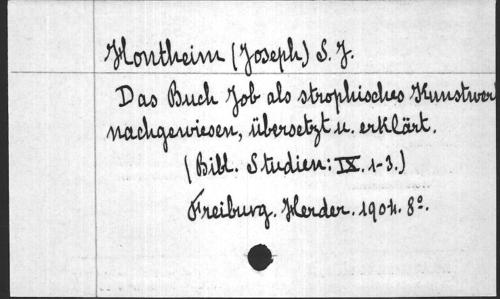 Hontheim (Joseph) S. J.
Das Buch Job als strophisches Kunstwer
nachgewiesen, übersetzt u. erklärt.
(Bibl. Studien: IX. 1-3.)
Freiburg. Herder. 1904. 8º.